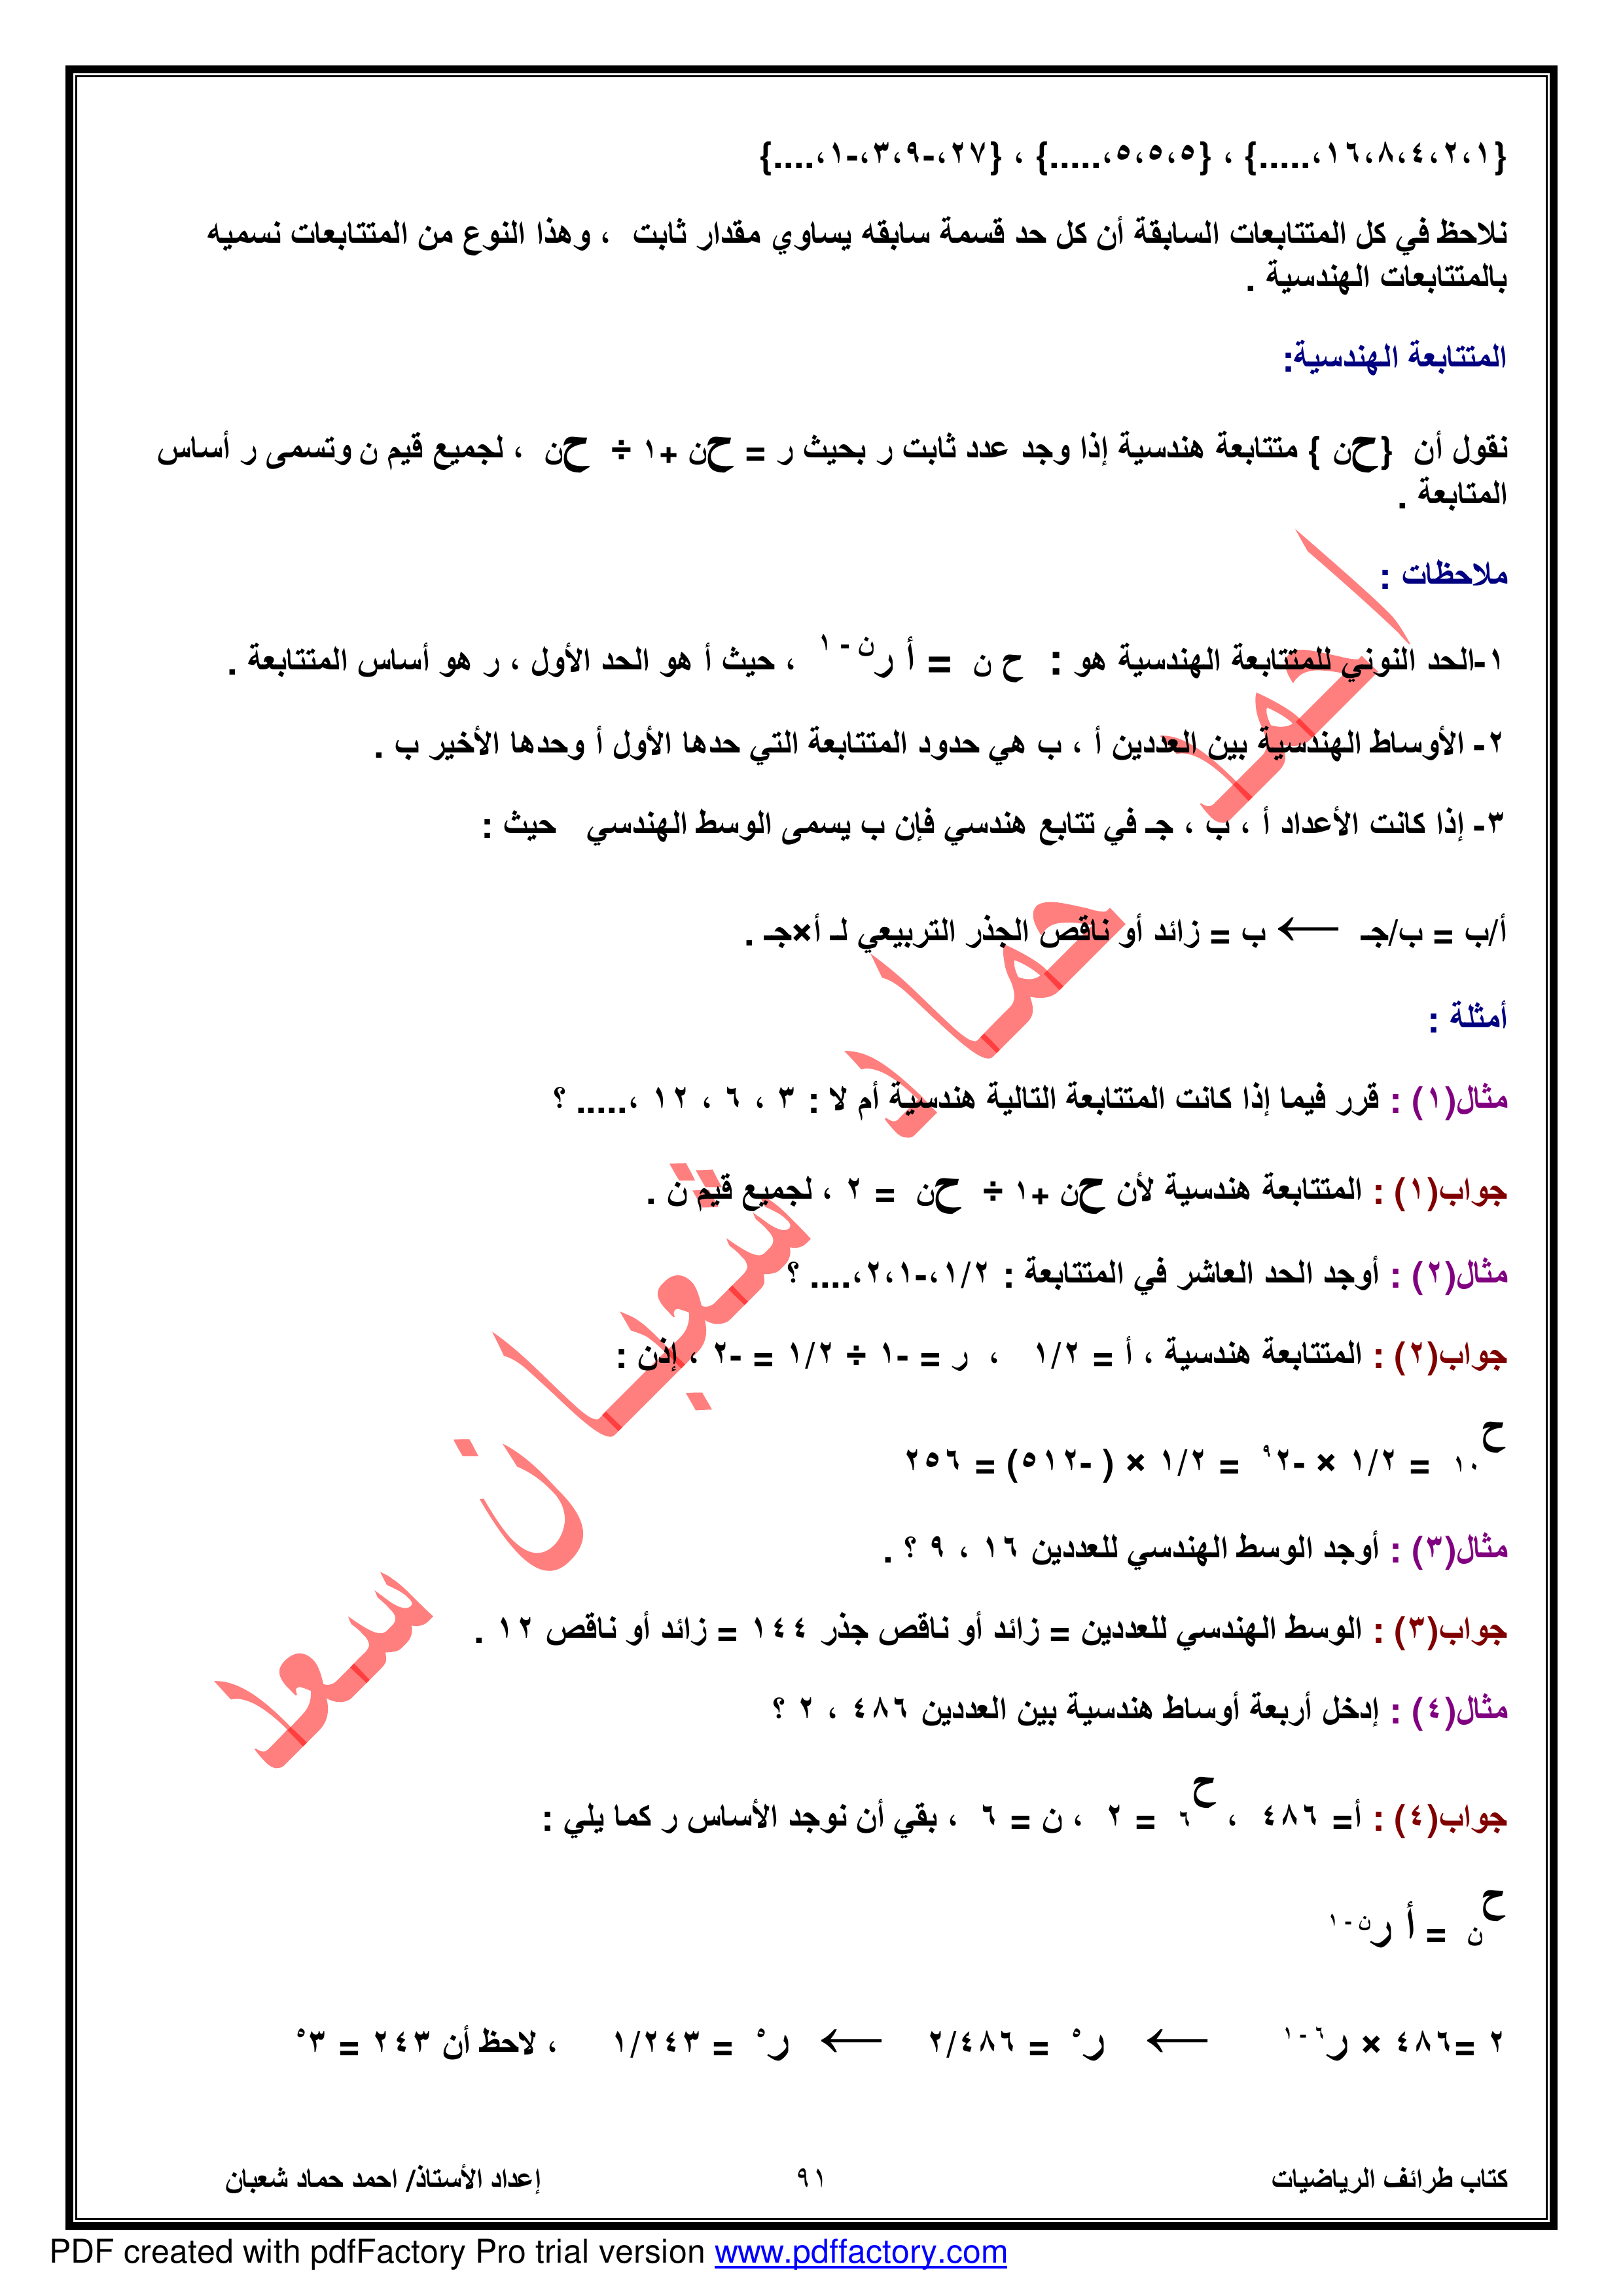 {١،٢،٤،٨،١٦،.....} ، {٥،٥،٥،.....} ، {٢٧،-٩،٣،-١،....}
نلاحظ في كل المتتابعات السابقة أن كل حد قسمة سابقه يساوي مقدار ثابت ، وهذا النوع من المتتابعات نسميه
بالمتتابعات الهندسية .
المتتابعة الهندسية:
نقول أن {حن } متتابعة هندسية إذا وجد عدد ثابت ر بحيث ر = حن +١ ÷ حن ، لجميع قيم ن وتسمى ر أساس
المتابعة .
ملاحظات :
١-الحد النوني للمتتابعة الهندسية هو : ح ن = أ ر^ن - ١ ، حيث أ هو الحد الأول ، ر هو أساس المتتابعة .
٢- الأوساط الهندسية بين العددين أ ، ب هي حدود المتتابعة التي حدها الأول أ وحدها الأخير ب .
٣- إذا كانت الأعداد أ ، ب ، جـ في تتابع هندسي فإن ب يسمى الوسط الهندسي حيث :
أ/ب = ب/جـ ← ب = زائد أو ناقص الجذر التربيعي لـ أ×جـ .
أمثلة :
مثال(١) : قرر فيما إذا كانت المتتابعة التالية هندسية أم لا : ٣ ، ٦ ، ١٢ ،..... ؟
جواب(١) : المتتابعة هندسية لأن حن +١ ÷ حن = ٢ ، لجميع قيم ن .
مثال(٢) : أوجد الحد العاشر في المتتابعة : ١/٢،-١،٢،.... ؟
جواب(٢) : المتتابعة هندسية ، أ = ١/٢ ، ر = -١ ÷ ١/٢ = -٢ ، إذن :
ح١٠ = ١/٢ × -٢^٩ = ١/٢ × ( -٥١٢) = ٢٥٦
مثال(٣) : أوجد الوسط الهندسي للعددين ١٦ ، ٩ ؟ .
جواب(٣) : الوسط الهندسي للعددين = زائد أو ناقص جذر ١٤٤ = زائد أو ناقص ١٢ .
مثال(٤) : إدخل أربعة أوساط هندسية بين العددين ٤٨٦ ، ٢ ؟
جواب(٤) : أ= ٤٨٦ ، ح٦ = ٢ ، ن = ٦ ، بقي أن نوجد الأساس ر كما يلي :
حن = أ ر^ن - ١
٢ =٤٨٦ × ر^٦ - ١ ← ر^٥ = ٢/٤٨٦ ← ر^٥ = ١/٢٤٣ ، لاحظ أن ٢٤٣ = ٣^٥
احمد حماد شعبان سعد
كتاب طرائف الرياضيات ٩١ إعداد الأستاذ/ احمد حماد شعبان
PDF created with pdfFactory Pro trial version www.pdffactory.com